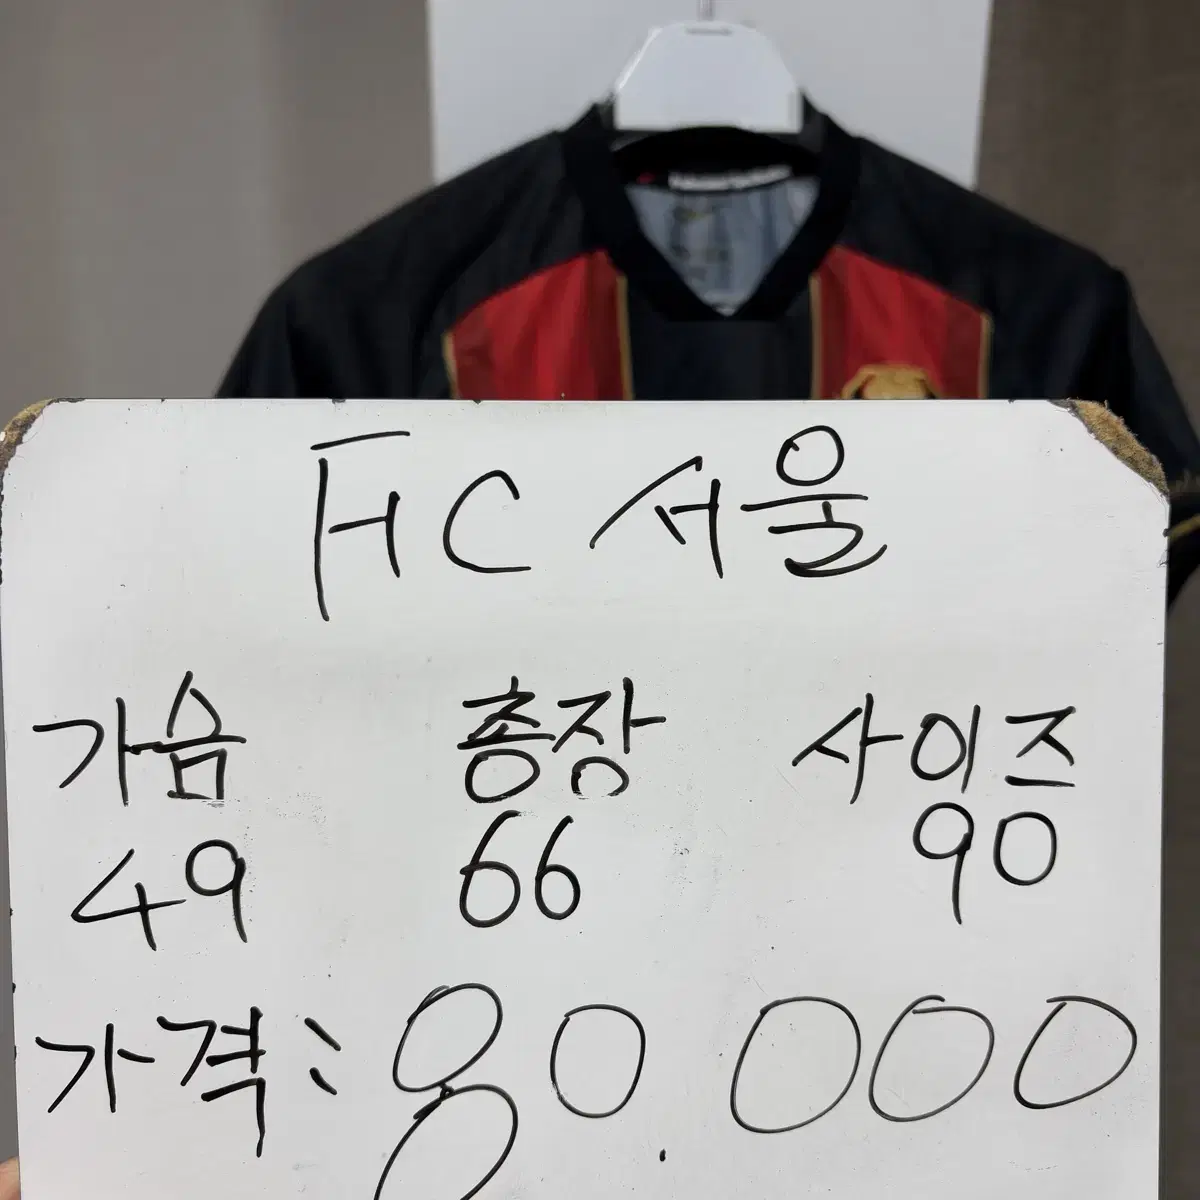 FC 서울
가슴 총장 사이즈
49 66 90
가격: 80.000